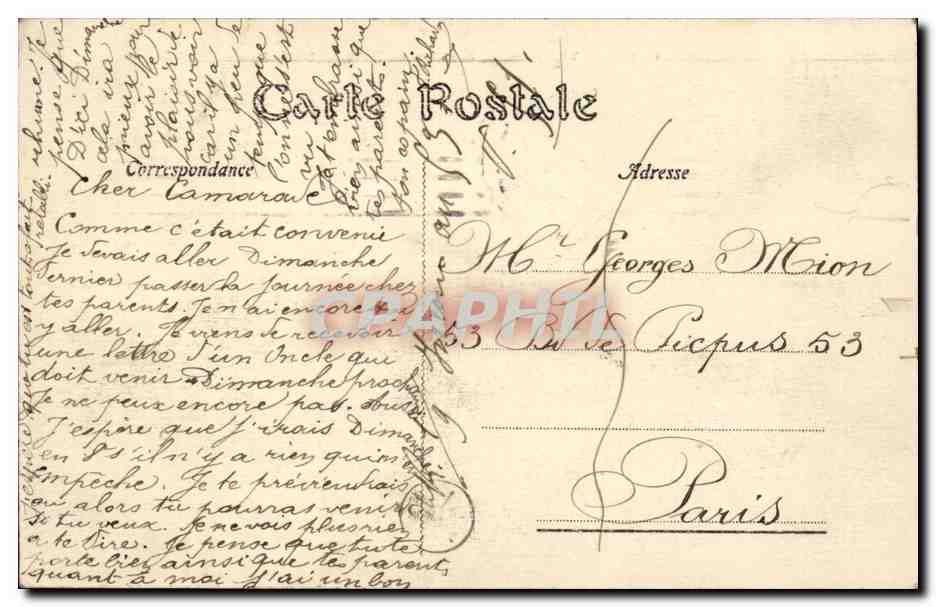 Carte Postale
Correspondance
Adresse
Cher Camarade
Comme c'était convenu
Je devais aller Dimanche
dernier passer la journée chez
tes parents. Je n'ai encore pu
y aller. Je viens de recevoir
une lettre d'un Oncle qui
doit venir Dimanche prochain
Je ne peux encore pas. Aussi
J'éspère que j'irais Dimanche
en 8 s'il n'y a rien qui m'
empêche. Je te préviendrais
ou alors tu pourras venir
si tu veux. Je ne vois plus rien
a te dire. Je pense que tu te
porte bien ainsi que tes parents
quant à moi J'ai un bon
rhume. Je
pense que
D'ici Dimanche
cela ira
mieux pour
avoir le
plaisir de
pouvoir
car il y a
un peu de
temps que
l'on ne s'est
vu.
bien ainsi que
tes parents.
Ton copain
Mr. Georges Mion
53 Bd de Picpus 53
Paris
CPAPHIL